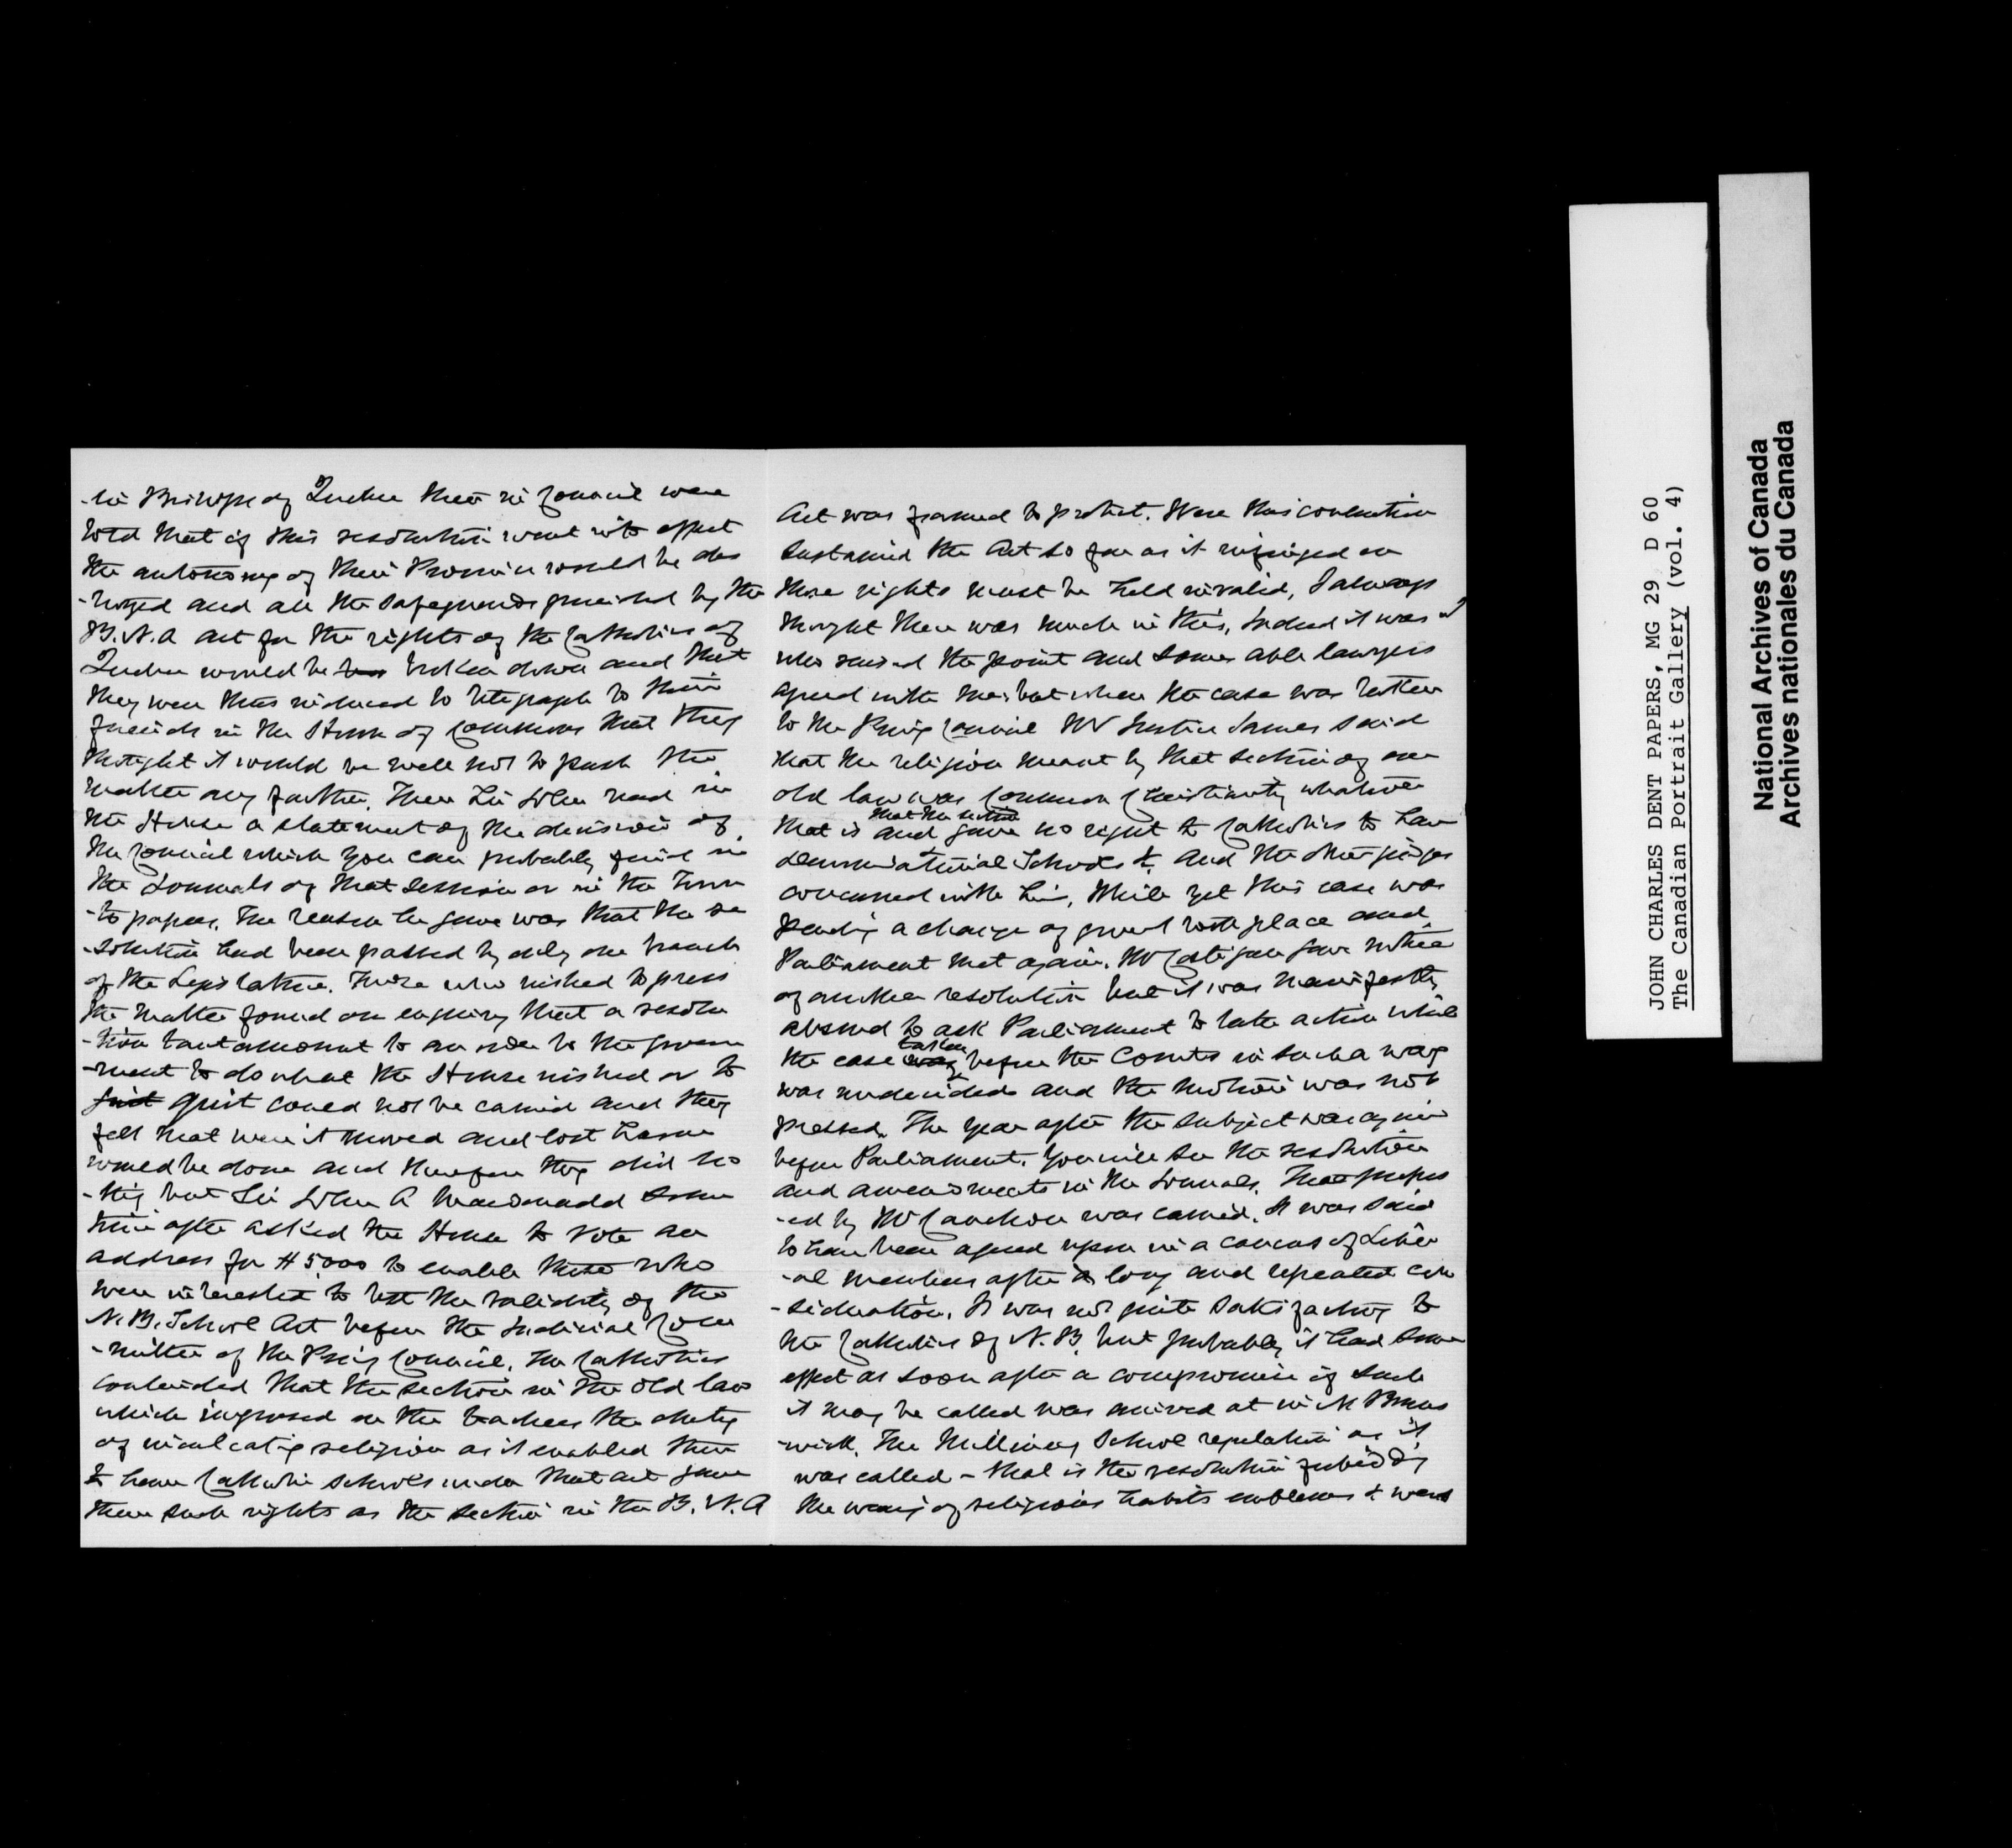 -lic Bishops of Quebec then in Council were
told that if this resolution went into effect
the autonomy of their Province would be des
-troyed and all the safeguards provided by the
B.N.A act for the rights of the Catholics of
Quebec would be broken down and that
they were thus induced to telegraph to their
friends in the House of Commons that they
thought it would be well not to push the
matter any further. Then Sir John read in
the House a statement of the decision of
the Council which you can probably find in
the Journals of that session or in the Toron
-to papers. The reason he gave was that the re
-solution had been passed by only one branch
of the Legislature. Those who wished to press
the matter found on enquiry that a resolu
-tion tantamount to an order to the govern
-ment to do what the House wished or to
quit could not be carried and they
felt that were it moved and lost harm
would be done and therefore they did no
-thing but Sir John A Macdonald some
time after asked the House to vote an
address for $5,000 to enable those who
were interested to test the validity of the
N.B. School Act before the Judicial Com
-mittee of the Privy Council. The Catholics
contended that the section in the old law
which imposed on the teachers the duty
of inculcating religion as it enabled them
to have Catholic schools under that act gave
them such rights as the section in the B.N.A
Act was framed to protect. Were this contention
sustained the Act so far as it infringed on
those rights must be held invalid, I always
thought there was much in this, indeed it was I
who raised the point and some able lawyers
agreed with me: but when the case was
to the Privy Council Mr Justice James said
that the religion meant by that section of our
old law was common Christianity whatever
that the section
that is and gave no right to Catholics to have
denominational schools &c and the other judges
concurred with him. While yet this case was
pending a change of govmt took place and
Parliament met again. Mr Costigan gave notice
of another resolution but it was manifestly
absurd to ask Parliament to take action while
taken
the case before the Courts in such a way
was undecided and the motion was not
pressed. The year after the subject was again
before Parliament. You will see the resolution
and amendments in the Journals. That propos
-ed by Mr Cauchon was carried. It was said
to have been agreed upon in a caucus of Liber
-al members after long and repeated con
-sideration. It was not quite satisfactory to
the Catholics of N.B. but probably it had some
effect as soon after a compromise if such
it may be called was arrived at in N Bruns
-wick. The millinery School regulation as it
was called - that is the resolution forbidding
the wearing of religious habits emblems & were
JOHN CHARLES DENT PAPERS, MG 29 D 60
The Canadian Portrait Gallery (vol. 4)
National Archives of Canada
Archives nationales du Canada